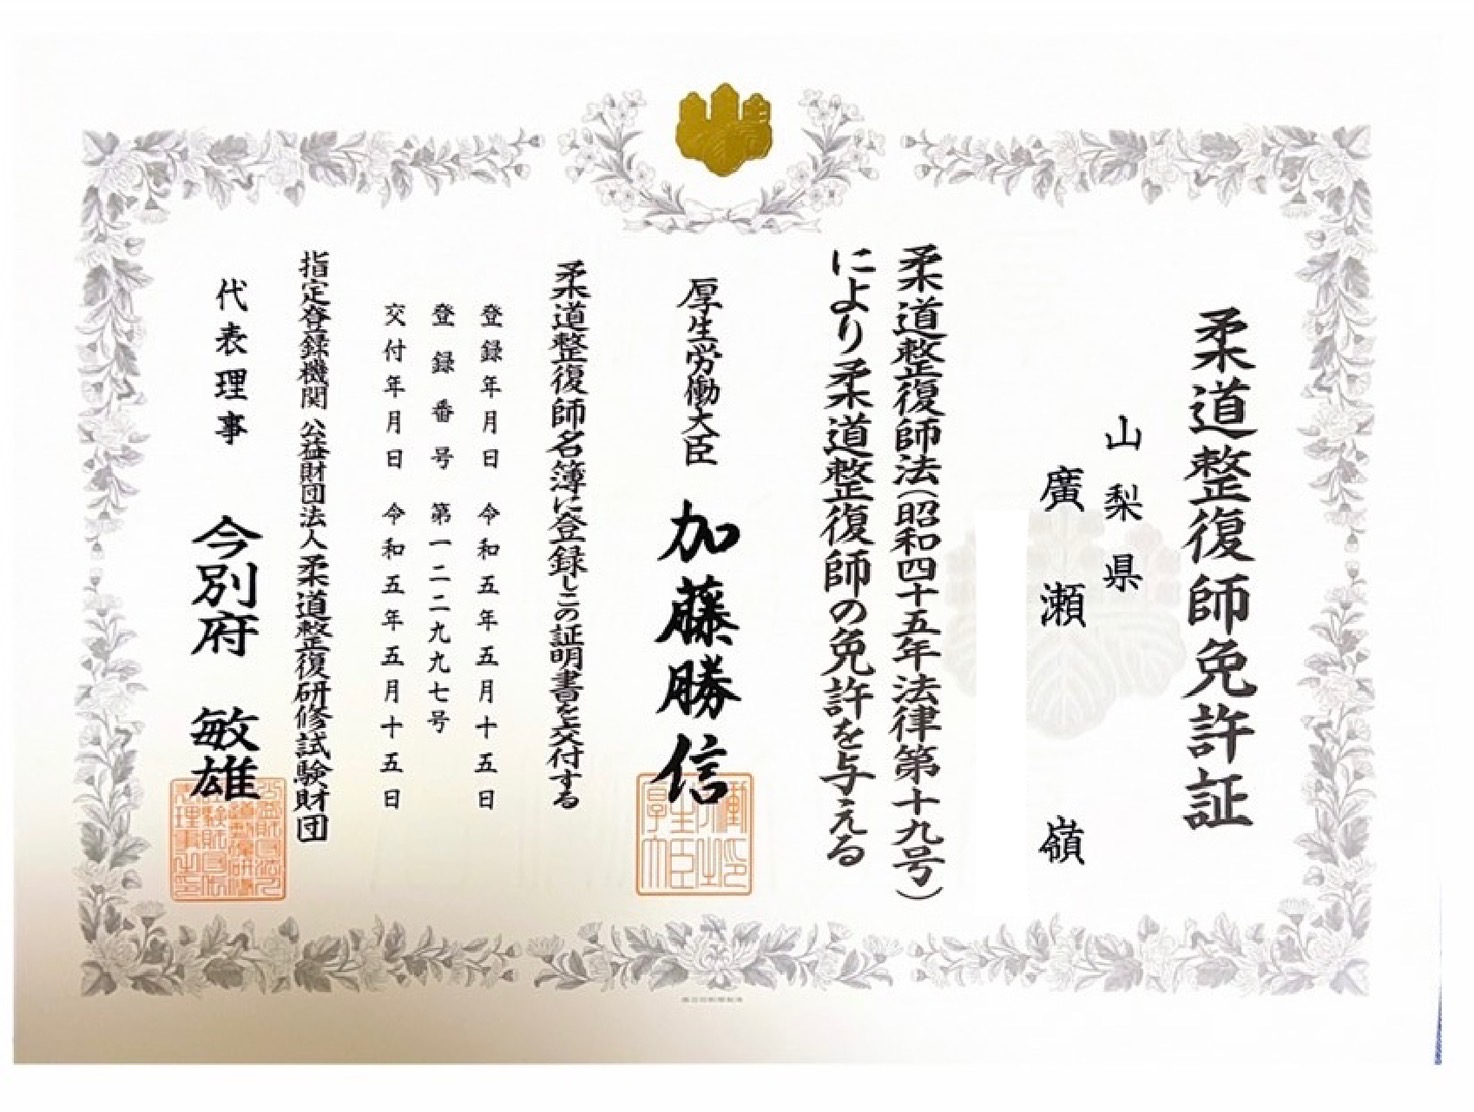 柔道整復師免許証
山梨県
廣瀬 嶺
柔道整復師法（昭和四十五年法律第十九号）
により柔道整復師の免許を与える
厚生労働大臣 加藤勝信
柔道整復師名簿に登録しこの証明書を交付する
登録年月日 令和五年五月十五日
登録番号 第一二二九九七号
交付年月日 令和五年五月十五日
指定登録機関 公益財団法人柔道整復研修試験財団
代表理事 今別府 敏雄